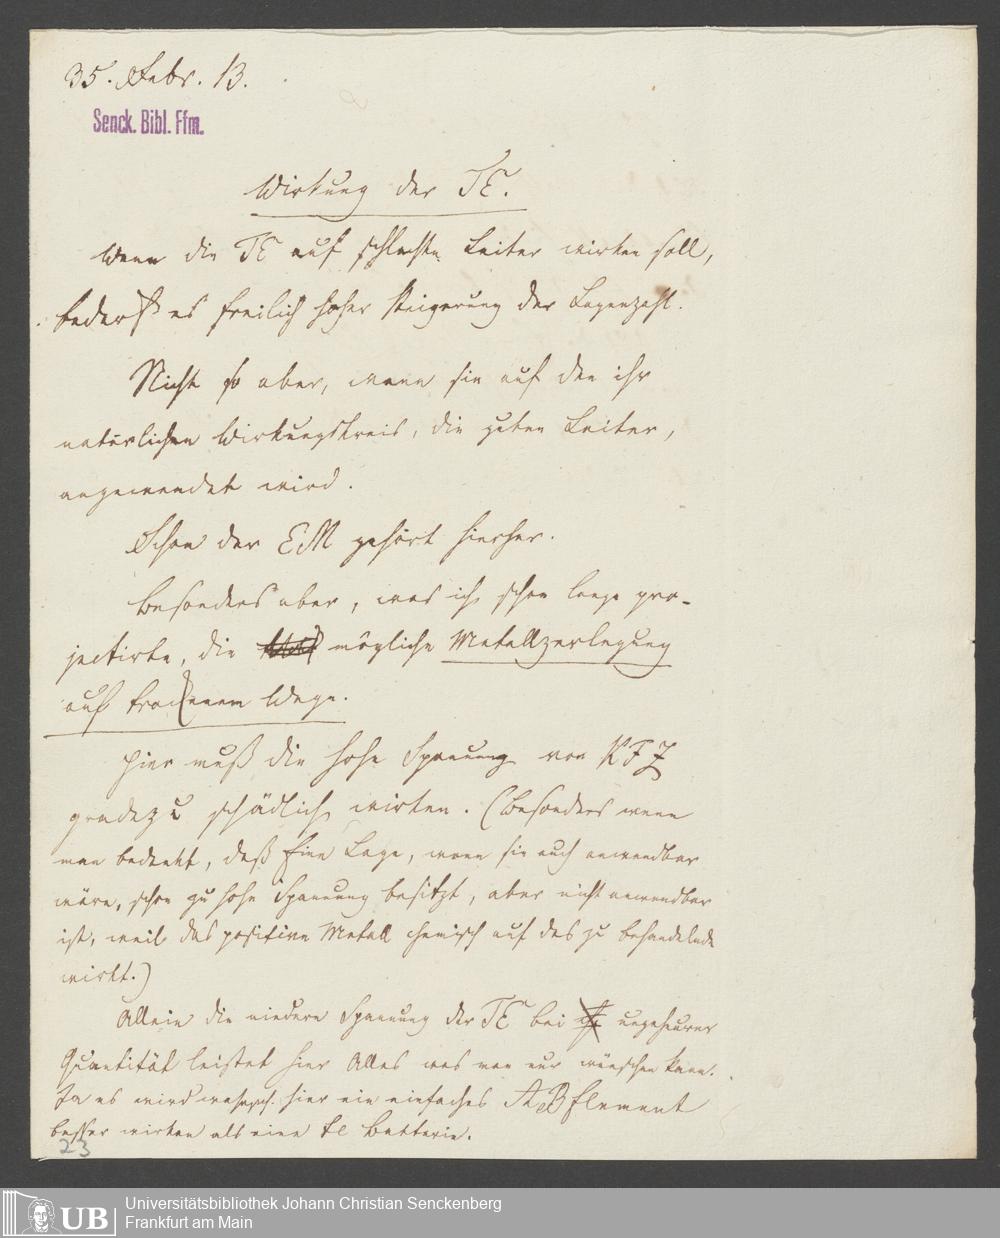 35. Febr. 13.
Senck. Bibl. Ffm.
Wirkung der TE.
Wenn die TE auf schlechte Leiter wirken soll,
bedarf es freilich hoher Steigerung der Lagenzahl.
Nicht so aber, wenn sie auf den ihr
natürlichen Wirkungskreis, die guten Leiter,
angewendet wird.
Schon der EM gehört hierher.
Besonders aber, was ich schon lange pro-
jectirte, die mögliche Metallzerlegung
auf trockenem Wege.
Hier muß die hohe Spannung von KFZ
gradezu schädlich wirken. (Besonders wenn
man bedenkt, daß Eine Lage, wenn sie auch anwendbar
wäre, schon zu hohe Spannung besitzt, aber nicht anwendbar
ist, weil das positive Metall chemisch auf das zu behandelnde
wirkt.)
Allein die niedere Spannung der TE bei ungeheurer
Quantität leistet hier Alles was man nur wünschen kann.
Ja es wird wahrsch. hier ein einfaches AB Element
besser wirken als eine Batterie.
23
Universitätsbibliothek Johann Christian Senckenberg
Frankfurt am Main
UB